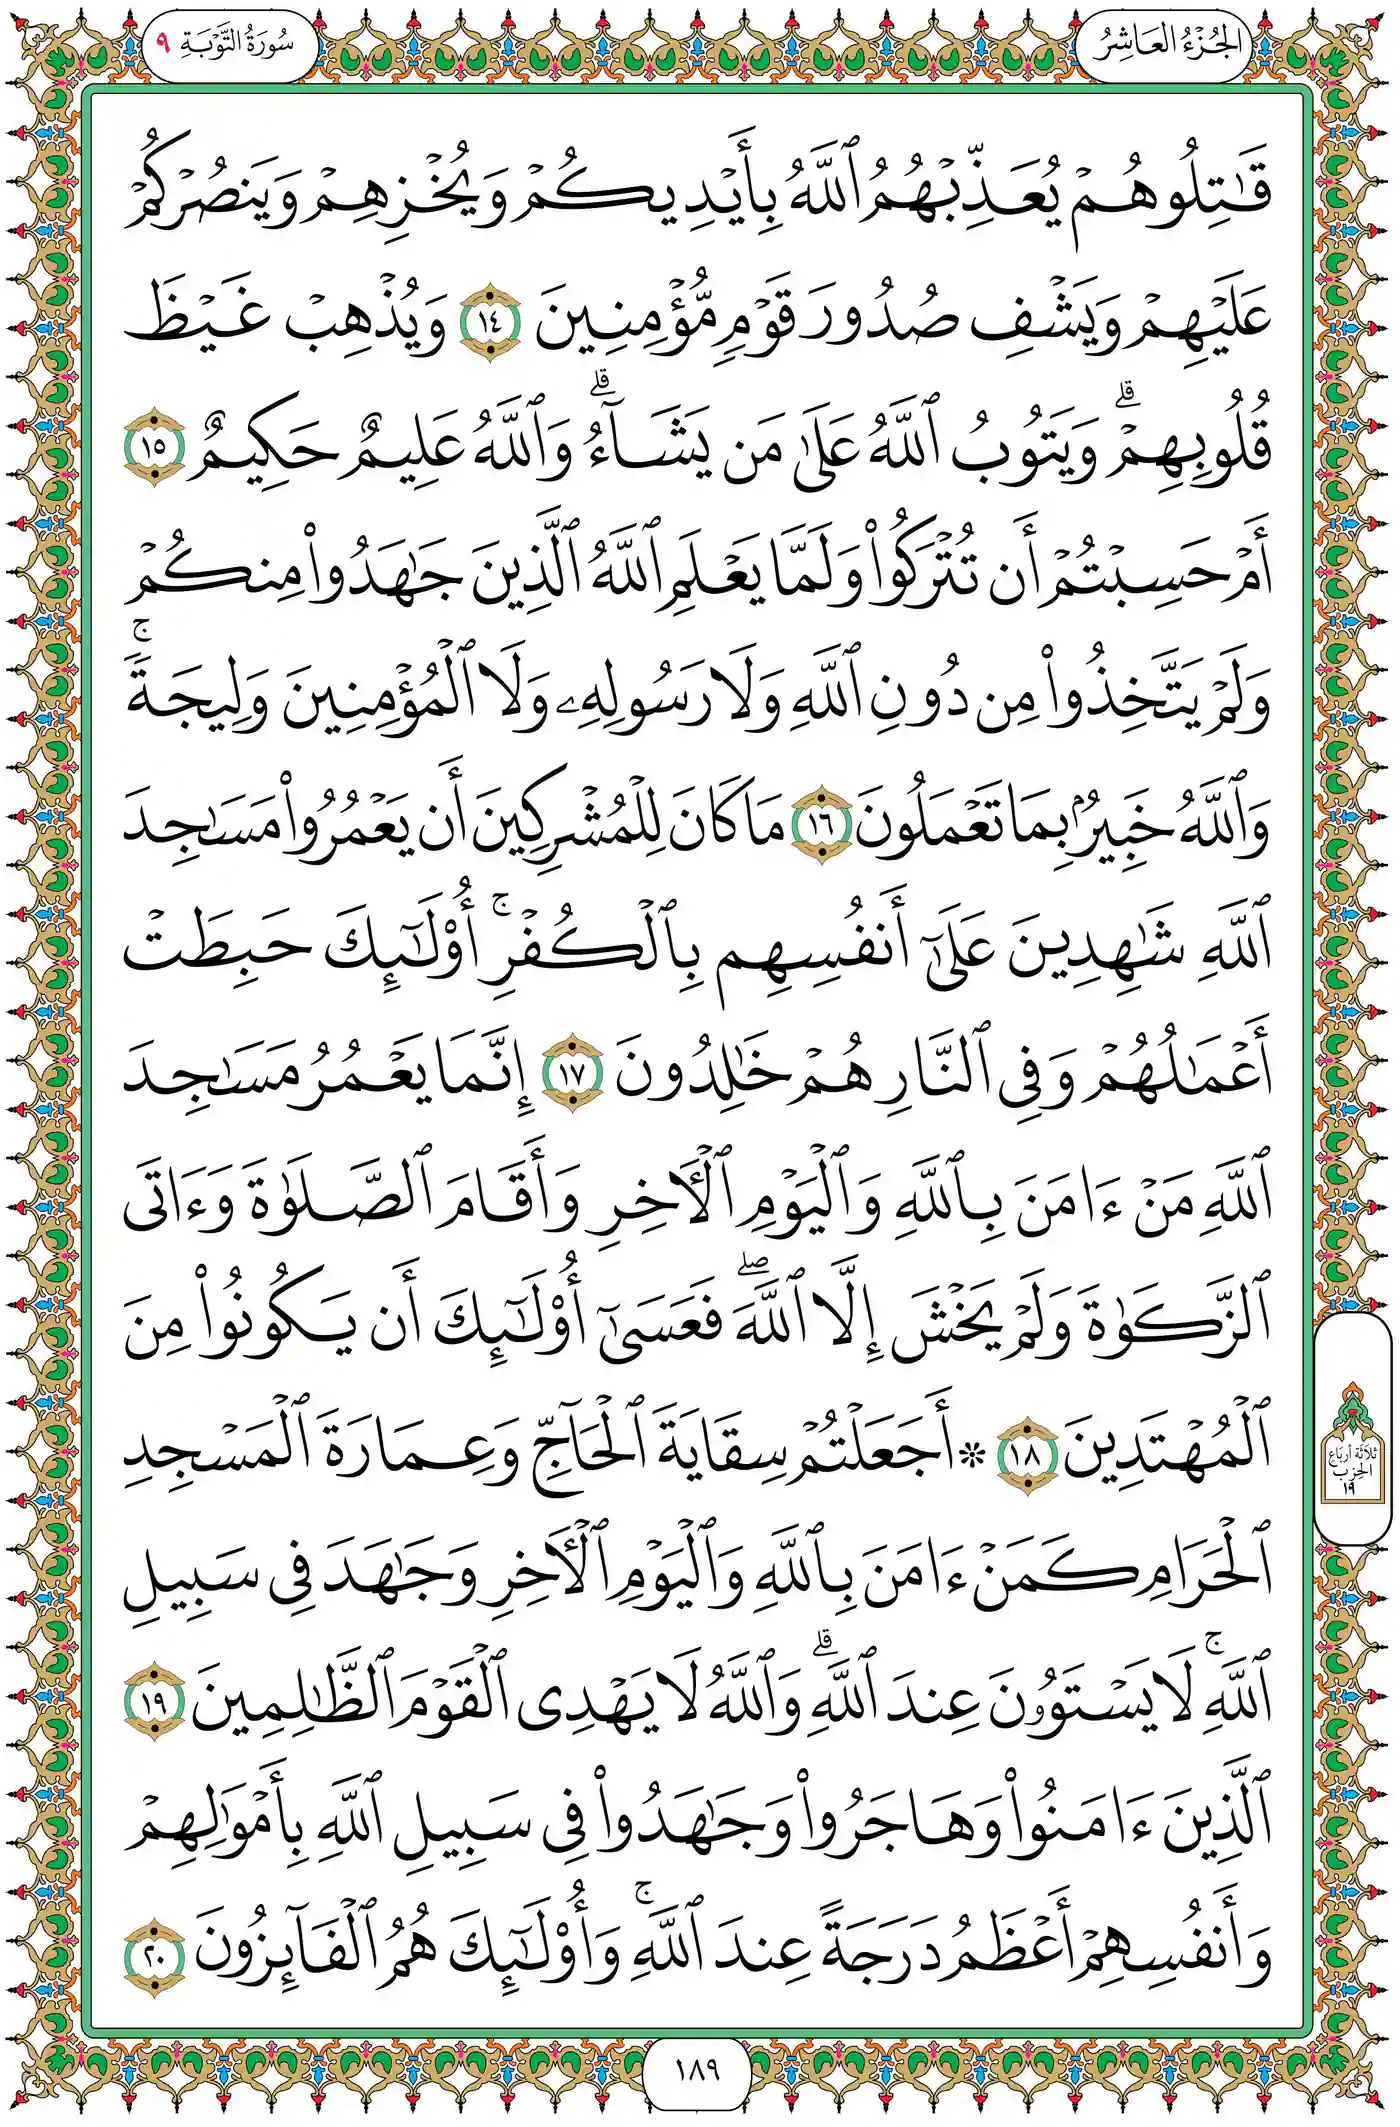 الجُزْءُ العَاشِرُ
سُورَةُ التَّوْبَةِ ٩
قَٰتِلُوهُمْ يُعَذِّبْهُمُ ٱللَّهُ بِأَيْدِيكُمْ وَيُخْزِهِمْ وَيَنصُرْكُمْ
عَلَيْهِمْ وَيَشْفِ صُدُورَ قَوْمٍ مُّؤْمِنِينَ ١٤ وَيُذْهِبْ غَيْظَ
قُلُوبِهِمْ ۗ وَيَتُوبُ ٱللَّهُ عَلَىٰ مَن يَشَآءُ ۗ وَٱللَّهُ عَلِيمٌ حَكِيمٌ ١٥
أَمْ حَسِبْتُمْ أَن تُتْرَكُوا۟ وَلَمَّا يَعْلَمِ ٱللَّهُ ٱلَّذِينَ جَٰهَدُوا۟ مِنكُمْ
وَلَمْ يَتَّخِذُوا۟ مِن دُونِ ٱللَّهِ وَلَا رَسُولِهِۦ وَلَا ٱلْمُؤْمِنِينَ وَلِيجَةً ۚ
وَٱللَّهُ خَبِيرٌۢ بِمَا تَعْمَلُونَ ١٦ مَا كَانَ لِلْمُشْرِكِينَ أَن يَعْمُرُوا۟ مَسَٰجِدَ
ٱللَّهِ شَٰهِدِينَ عَلَىٰٓ أَنفُسِهِم بِٱلْكُفْرِ ۚ أُو۟لَٰٓئِكَ حَبِطَتْ
أَعْمَٰلُهُمْ وَفِى ٱلنَّارِ هُمْ خَٰلِدُونَ ١٧ إِنَّمَا يَعْمُرُ مَسَٰجِدَ
ٱللَّهِ مَنْ ءَامَنَ بِٱللَّهِ وَٱلْيَوْمِ ٱلْءَاخِرِ وَأَقَامَ ٱلصَّلَوٰةَ وَءَاتَى
ٱلزَّكَوٰةَ وَلَمْ يَخْشَ إِلَّا ٱللَّهَ ۖ فَعَسَىٰٓ أُو۟لَٰٓئِكَ أَن يَكُونُوا۟ مِنَ
ٱلْمُهْتَدِينَ ١٨ * أَجَعَلْتُمْ سِقَايَةَ ٱلْحَآجِّ وَعِمَارَةَ ٱلْمَسْجِدِ
ٱلْحَرَامِ كَمَنْ ءَامَنَ بِٱللَّهِ وَٱلْيَوْمِ ٱلْءَاخِرِ وَجَٰهَدَ فِى سَبِيلِ
ٱللَّهِ ۚ لَا يَسْتَوُۥنَ عِندَ ٱللَّهِ ۗ وَٱللَّهُ لَا يَهْدِى ٱلْقَوْمَ ٱلظَّٰلِمِينَ ١٩
ٱلَّذِينَ ءَامَنُوا۟ وَهَاجَرُوا۟ وَجَٰهَدُوا۟ فِى سَبِيلِ ٱللَّهِ بِأَمْوَٰلِهِمْ
وَأَنفُسِهِمْ أَعْظَمُ دَرَجَةً عِندَ ٱللَّهِ ۚ وَأُو۟لَٰٓئِكَ هُمُ ٱلْفَآئِزُونَ ٢٠
ثلاثة أرباع
الحزب
١٩
١٨٩